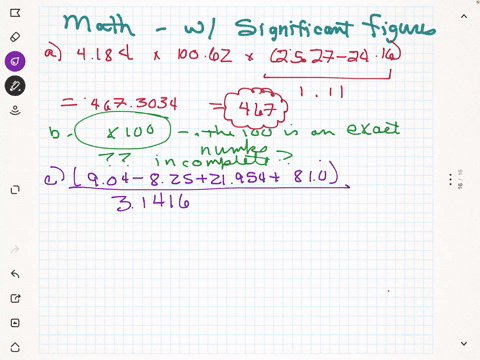 Math - w/ Significant figures
a) 4.184 x 100.62 x (25.27-24.16)
1.11
= 467.3034 = 467
b. x 100 - . the 100 is an exact
number
?? incomplete?
c) (9.04 - 8.25 + 21.954 + 81.0)
3.1416